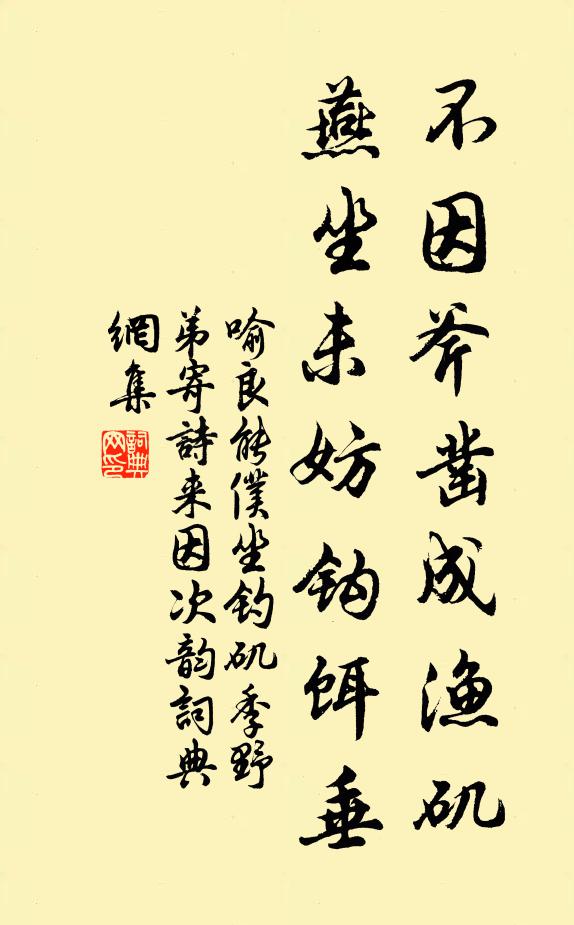 不因斧凿成渔矶
燕坐未妨钩饵垂
喻良能僕坐钓矶季野
弟寄詩来因次韵詞典
網集
詞典
网印